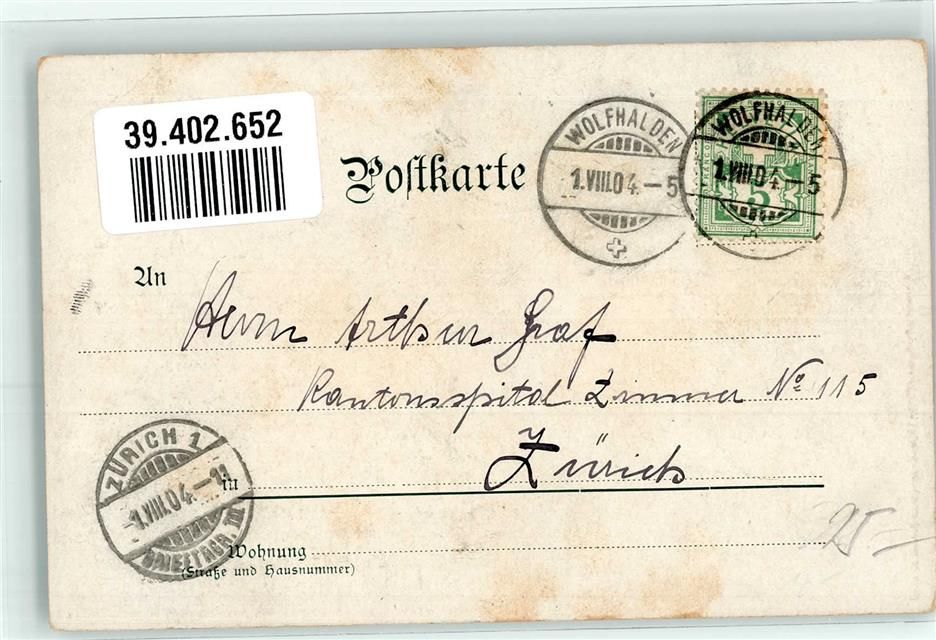 39.402.652
Postkarte
WOLFHALDEN
1.VIII.04.-5
WOLFHALDEN
1.VIII.04.-5
5
An
Herrn Arthur Graf
Kantonsspital Zimmer No 115
Zürich
ZÜRICH 1
1.VIII.04.-11
BRIEFTRGR. III
in
Wohnung
(Straße und Hausnummer)
25.-